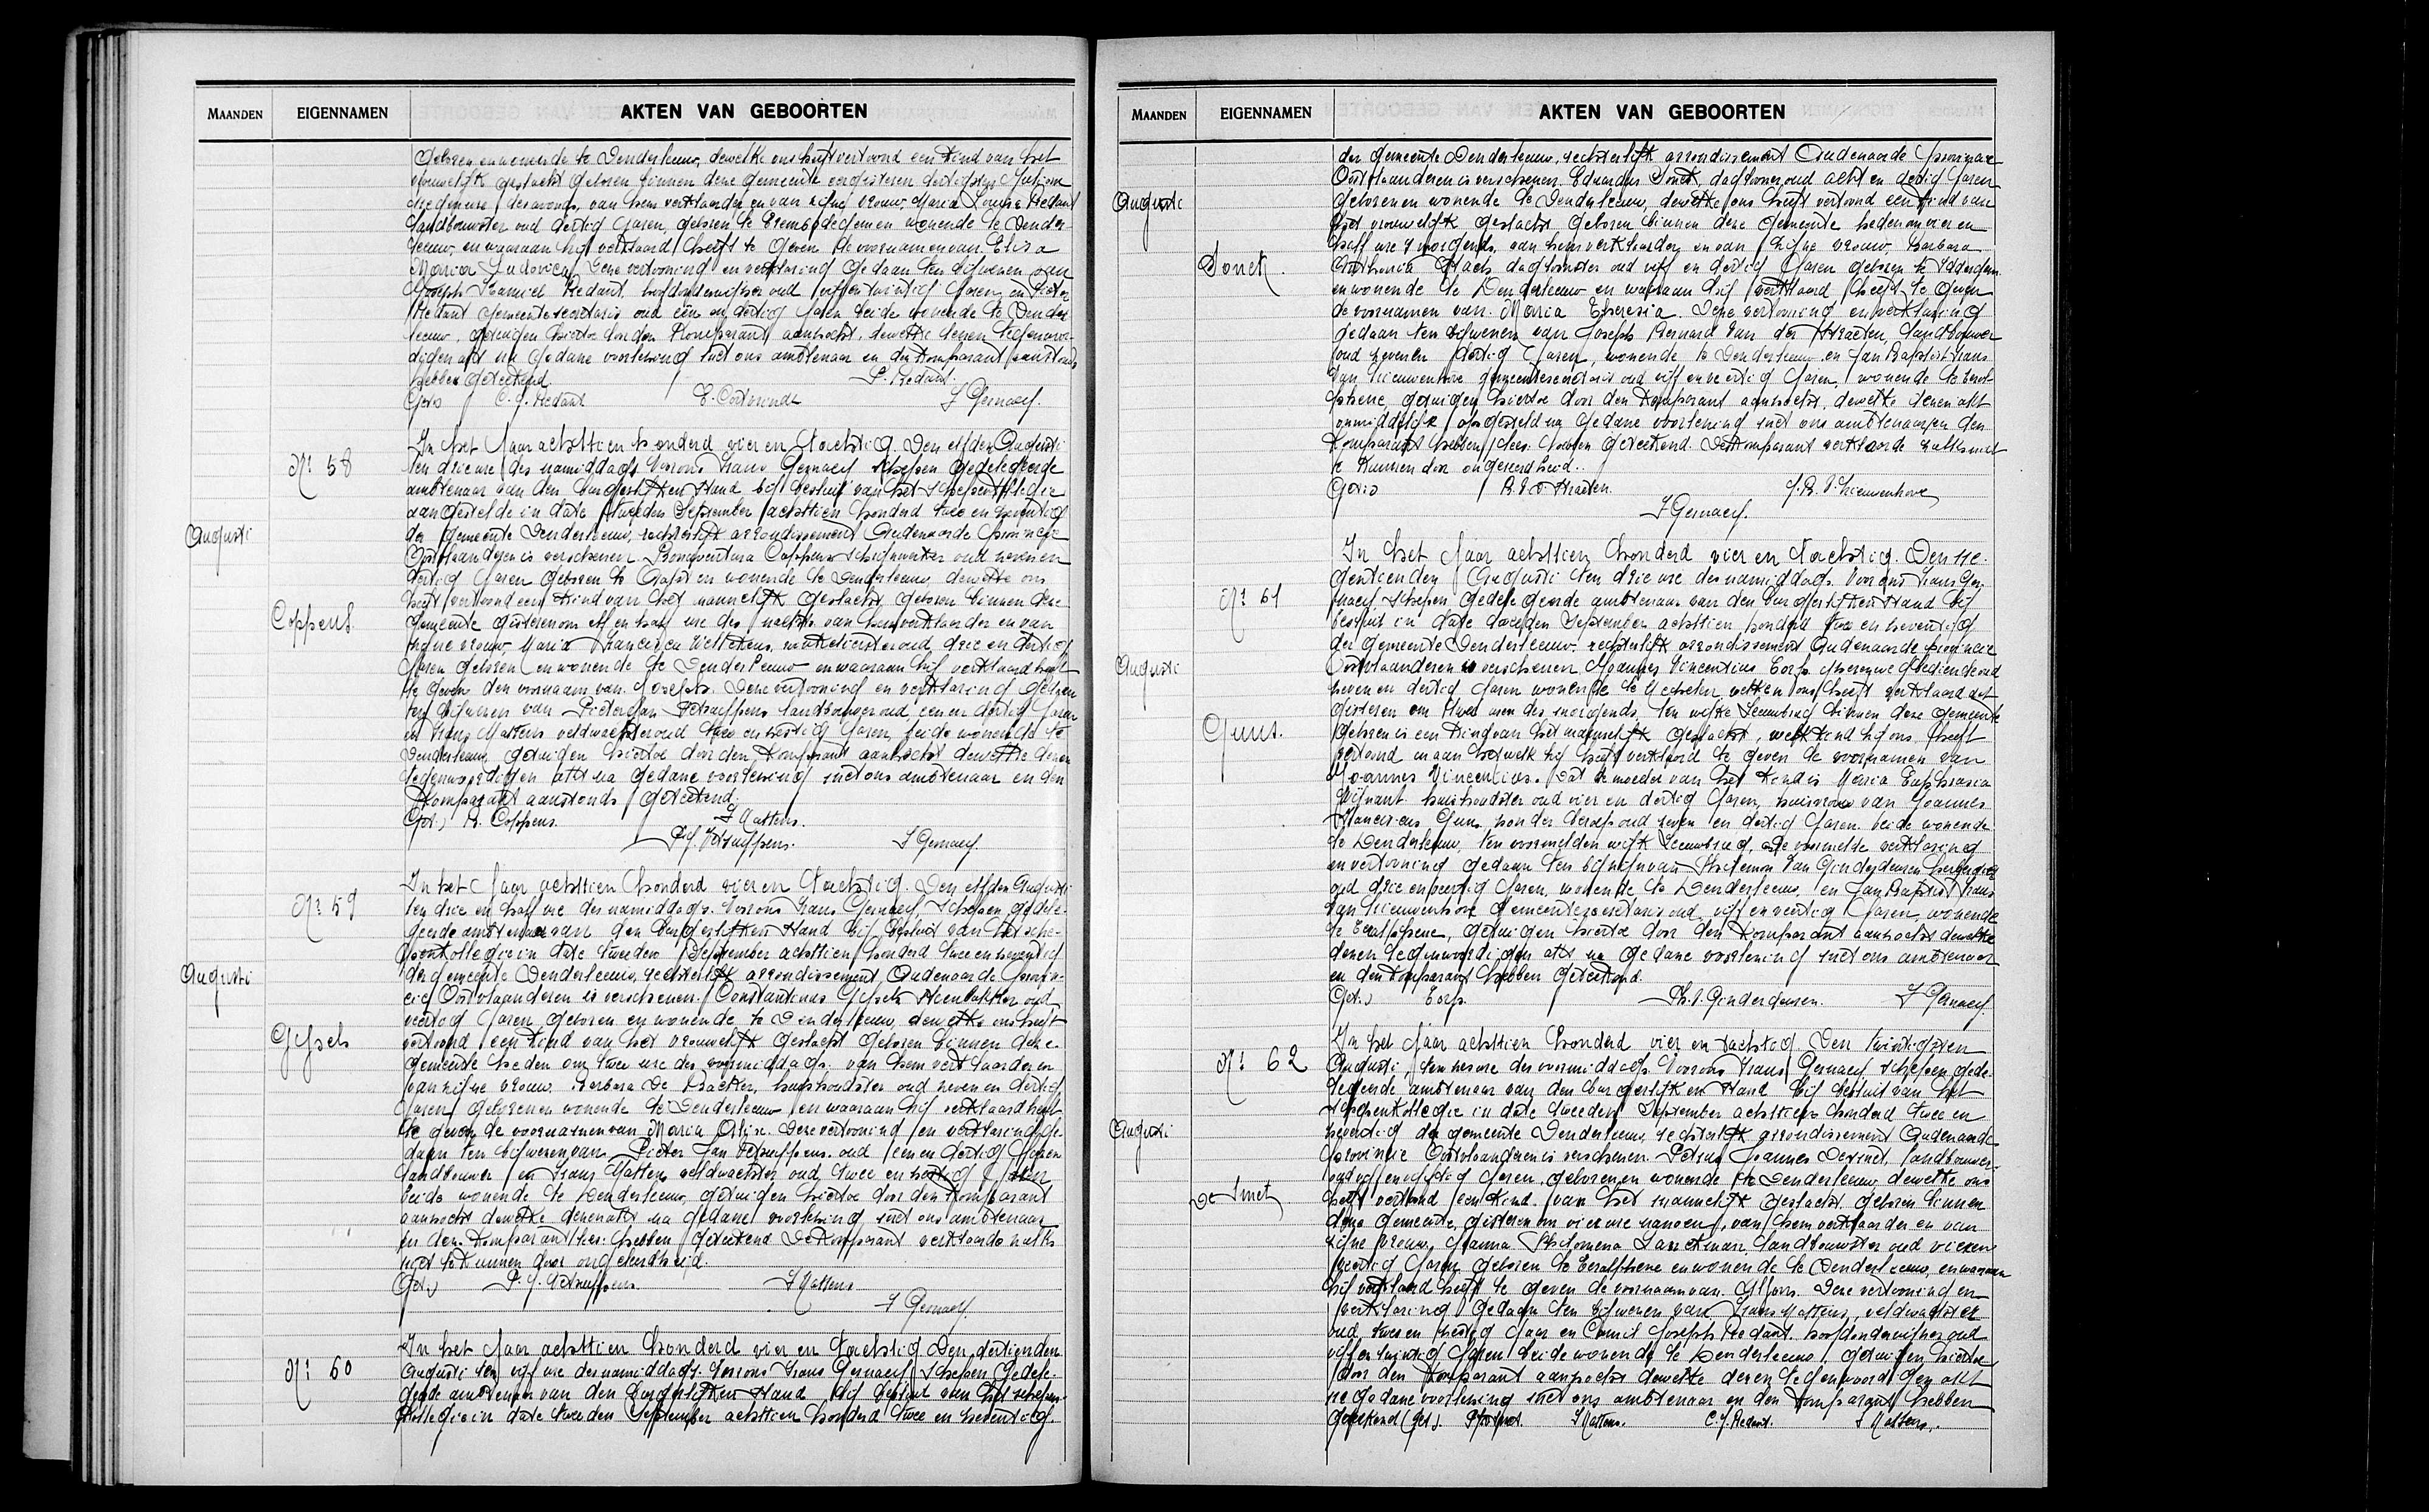 MAANDEN EIGENNAMEN AKTEN VAN GEBOORTEN
Geboren en wonende te Denderleeuw, dewelke ons heeft vertoond een kind van het
vrouwelijk geslacht geboren binnen deze gemeente eergisteren dertigsten
drie ure des avonds, van hem verklaarder en van zijne vrouw, Maria Louisa Redant
landbouwster oud dertig Jaren, geboren te Erembodegem en wonende te Dender-
leeuw, en waaraan hij verklaard heeft te geven de voornamen van Eliza
Maria Ludovica, Deze vertooning en verklaring gedaan ten bijwezen van
Joseph Redant, hoofdonderwijzer oud vijf en twintig Jaren, en Pieter
Redant gemeentesecretaris oud een en dertig Jaren beide wonende te Dender
leeuw, getuigen hiertoe door den Komparant aanzocht, dewelke dezen tegenwoor-
digen akt na gedane voorlezing met ons ambtenaar en den Komparant aanstonds
hebben geteekend. P. Redant.
Get.) C. J. Redant F Gernaey.
Nr 58
Augusti
Coppens
In het Jaar achttien honderd vier en tachtig. Den elfden Augusti
ten drie ure des namiddags. Voor ons Frans Gernaey Schepen gedelegeerde
ambtenaar van den burgerlijken Stand, bij besluit van het Schepenkollegie
aangestelde in date tweeden September achttien honderd twee en zeventig
der gemeente Denderleeuw, rechterlijk arrondissement Oudenaarde provincie
Oostvlaanderen is verschenen Bonaventura Coppens schijnwerker oud zeven en
dertig Jaren geboren te Haaltert en wonende te Denderleeuw, dewelke ons
heeft vertoond een kind van het mannelijk geslacht, geboren binnen deze
gemeente gisteren om elf en half ure des nachts van hem verklaarder en van
zijne vrouw Maria Francisca winkelierster oud drie en dertig
Jaren geboren en wonende te Denderleeuw en waaraan hij verklaard heeft
te geven den voornaam van Joseph. Deze vertooning en verklaring gedaan
ten bijwezen van Pieter Jan Detruyffens landbouwer oud een en dertig Jaren
en Frans Mattens veldwachter oud twee en Jaren, beide wonende te
Denderleeuw, getuigen hiertoe door den Komparant aanzocht dewelke dezen
tegenwoordigen akt na gedane voorlezing met ons ambtenaar en den
Komparant aanstonds geteekend.
Get.) B. Coppens. F Mattens.
P. J. Detruyffens. F Gernaey.
Nr 59
Augusti
Gijsels
In het Jaar achttien honderd vier en tachtig. Den elfden Augusti
ten drie en half ure des namiddags. Voor ons Frans Gernaey, Schepen gedele-
geerde ambtenaar van den burgerlijken Stand bij besluit van het sche-
penkollegie in date tweeden September achttien honderd twee en zeventig
der gemeente Denderleeuw, rechterlijk arrondissement Oudenaarde provin-
cie Oostvlaanderen is verschenen Constantinus Gijsels Steenbakker oud
veertig Jaren geboren en wonende te Denderleeuw, dewelke ons heeft
vertoond een kind van het vrouwelijk geslacht geboren binnen deze
gemeente heden om twee ure des voormiddags. van hem verklaarder en
van zijne vrouw Barbara De Backer, huishoudster oud zeven en dertig
Jaren geboren en wonende te Denderleeuw en waaraan hij verklaard heeft
te geven de voornamen van Maria Deze vertooning en verklaring ge-
daan ten bijwezen van Pieter Jan Detruyffens oud een en dertig Jaren
landbouwer en Frans Mattens veldwachter oud twee en Jaren
beide wonende te Denderleeuw, getuigen hiertoe door den Komparant
aanzocht dewelke dezen akt na gedane voorlezing met ons ambtenaar
en den Komparant hebben geteekend De Komparant verklaarde zulks
niet te kunnen door ongeleerdheid.
Get.) P. J. Detruyffens F Mattens
F Gernaey.
Nr 60
In het Jaar achttien honderd vier en tachtig Den dertienden
Augusti ten vijf ure des namiddags. Voor ons Frans Gernaey, Schepen gedele-
geerde ambtenaar van den burgerlijken Stand bij besluit van het schepen-
kollegie in date tweeden September achttien honderd twee en zeventig.
MAANDEN EIGENNAMEN AKTEN VAN GEBOORTEN
Augusti
Sonck.
der gemeente Denderleeuw, rechterlijk arrondissement Oudenaarde provincie
Oostvlaanderen is verschenen Eduardus Sonck, daglooner oud acht en dertig Jaren
geboren en wonende te Denderleeuw, dewelke ons heeft vertoond een kind van
het vrouwelijk geslacht geboren binnen deze gemeente heden om vier en
half ure 's morgends, van hem verklaarder en van zijne vrouw, Barbara
daglooster oud vijf en dertig Jaren geboren te Iddergem
en wonende te Denderleeuw en waaraan hij verklaard heeft te geven
de voornamen van Maria Theresia. Deze vertooning en verklaring
gedaan ten bijwezen van Joseph Bernard Van der Straeten, landbouwer
oud zeven en dertig Jaren, wonende te Denderleeuw en Jan Baptist Frans
Van Nieuwenhove gemeentesecretaris oud vijf en veertig Jaren, wonende te Eerst-
phene, getuigen hiertoe door den Komparant aanzocht, dewelke dezen akt
onmiddelijk opgesteld na gedane voorlezing met ons ambtenaar en den
Komparant hebben geteekend. De Komparant verklaarde zulks niet
te kunnen door ongeleerdheid.
Get.) B. V. d. Straeten. J. B. V. Nieuwenhove
F Gernaey.
Nr 61
Augusti
Guns.
In het Jaar achttien honderd vier en tachtig. Den ne-
gentienden Augusti ten drie ure des namiddags. Voor ons Frans Ger-
naey Schepen gedelegeerde ambtenaar van den burgerlijken Stand bij
besluit in date tweeden September achttien honderd twee en zeventig
der gemeente Denderleeuw rechterlijk arrondissement Oudenaarde provincie
Oostvlaanderen is verschenen Joannes Vincentius Eorp, oud
zeven en dertig Jaren wonende te Mechelen welken ons heeft verklaard dat
gisteren om twee uren des morgends, ten wijke Leeuwbrug binnen deze gemeente
geboren is een kind van het mannelijk geslacht, welk kind hij ons heeft
vertoond en aan hetwelk hij heeft verklaard te geven de voornamen van
Joannes Vincentius. Dat de moeder van het kind is Maria Euphrasia
Wijnant huishoudster oud vier en dertig Jaren, huisvrouw van Joannes
Franciscus Guns zonder beroep oud zeven en dertig Jaren beide wonende
te Denderleeuw, ten voormelden wijk Leeuwbrug, de voormelde verklaring
en vertooning gedaan ten bijwezen van Philemon Van Ginderdeuren herbergier
oud drie en veertig Jaren, wonende te Denderleeuw, en Jan Baptist Frans
Van Nieuwenhove gemeentesecretaris oud vijf en veertig Jaren, wonende
te Eersphene, getuigen hiertoe door den Komparant aanzocht dewelke
dezen tegenwoordigen akt na gedane voorlezing met ons ambtenaar
en den Komparant hebben geteekend.
Get.) Eorp. Ph. V. Ginderdeuren. F Gernaey.
Nr 62
Augusti
De Smet
In het Jaar achttien honderd vier en tachtig Den twintigsten
Augusti, ten ure des voormiddags. Voor ons Frans Gernaey schepen gede-
legeerde ambtenaar van den burgerlijken Stand bij besluit van het
schepenkollegie in date tweeden September achttien honderd twee en
zeventig der gemeente Denderleeuw, rechterlijk arrondissement Oudenaarde
provincie Oostvlaanderen is verschenen Petrus Joannes Desmet, landbouwer
oud Jaren, geboren en wonende te Denderleeuw dewelke ons
heeft vertoond een kind van het mannelijk geslacht geboren binnen
deze gemeente, gisteren om vier ure van hem verklaarder en van
zijne vrouw, Joanna Philomena landbouwster oud vier en
veertig Jaren geboren te en wonende te Denderleeuw, en waaraan
hij verklaard heeft te geven de voornaam van Deze vertooning en
verklaring gedaan ten bijwezen van Frans Mattens, veldwachter
oud twee en Jaar en Camil Joseph Redant hoofdonderwijzer oud
vijf en twintig Jaren beide wonende te Denderleeuw, getuigen hiertoe
door den Komparant aanzocht dewelke dezen tegenwoordigen akt
na gedane voorlezing met ons ambtenaar en den Komparant hebben
geteekend (Get.). F Mattens. C. J. Redant.